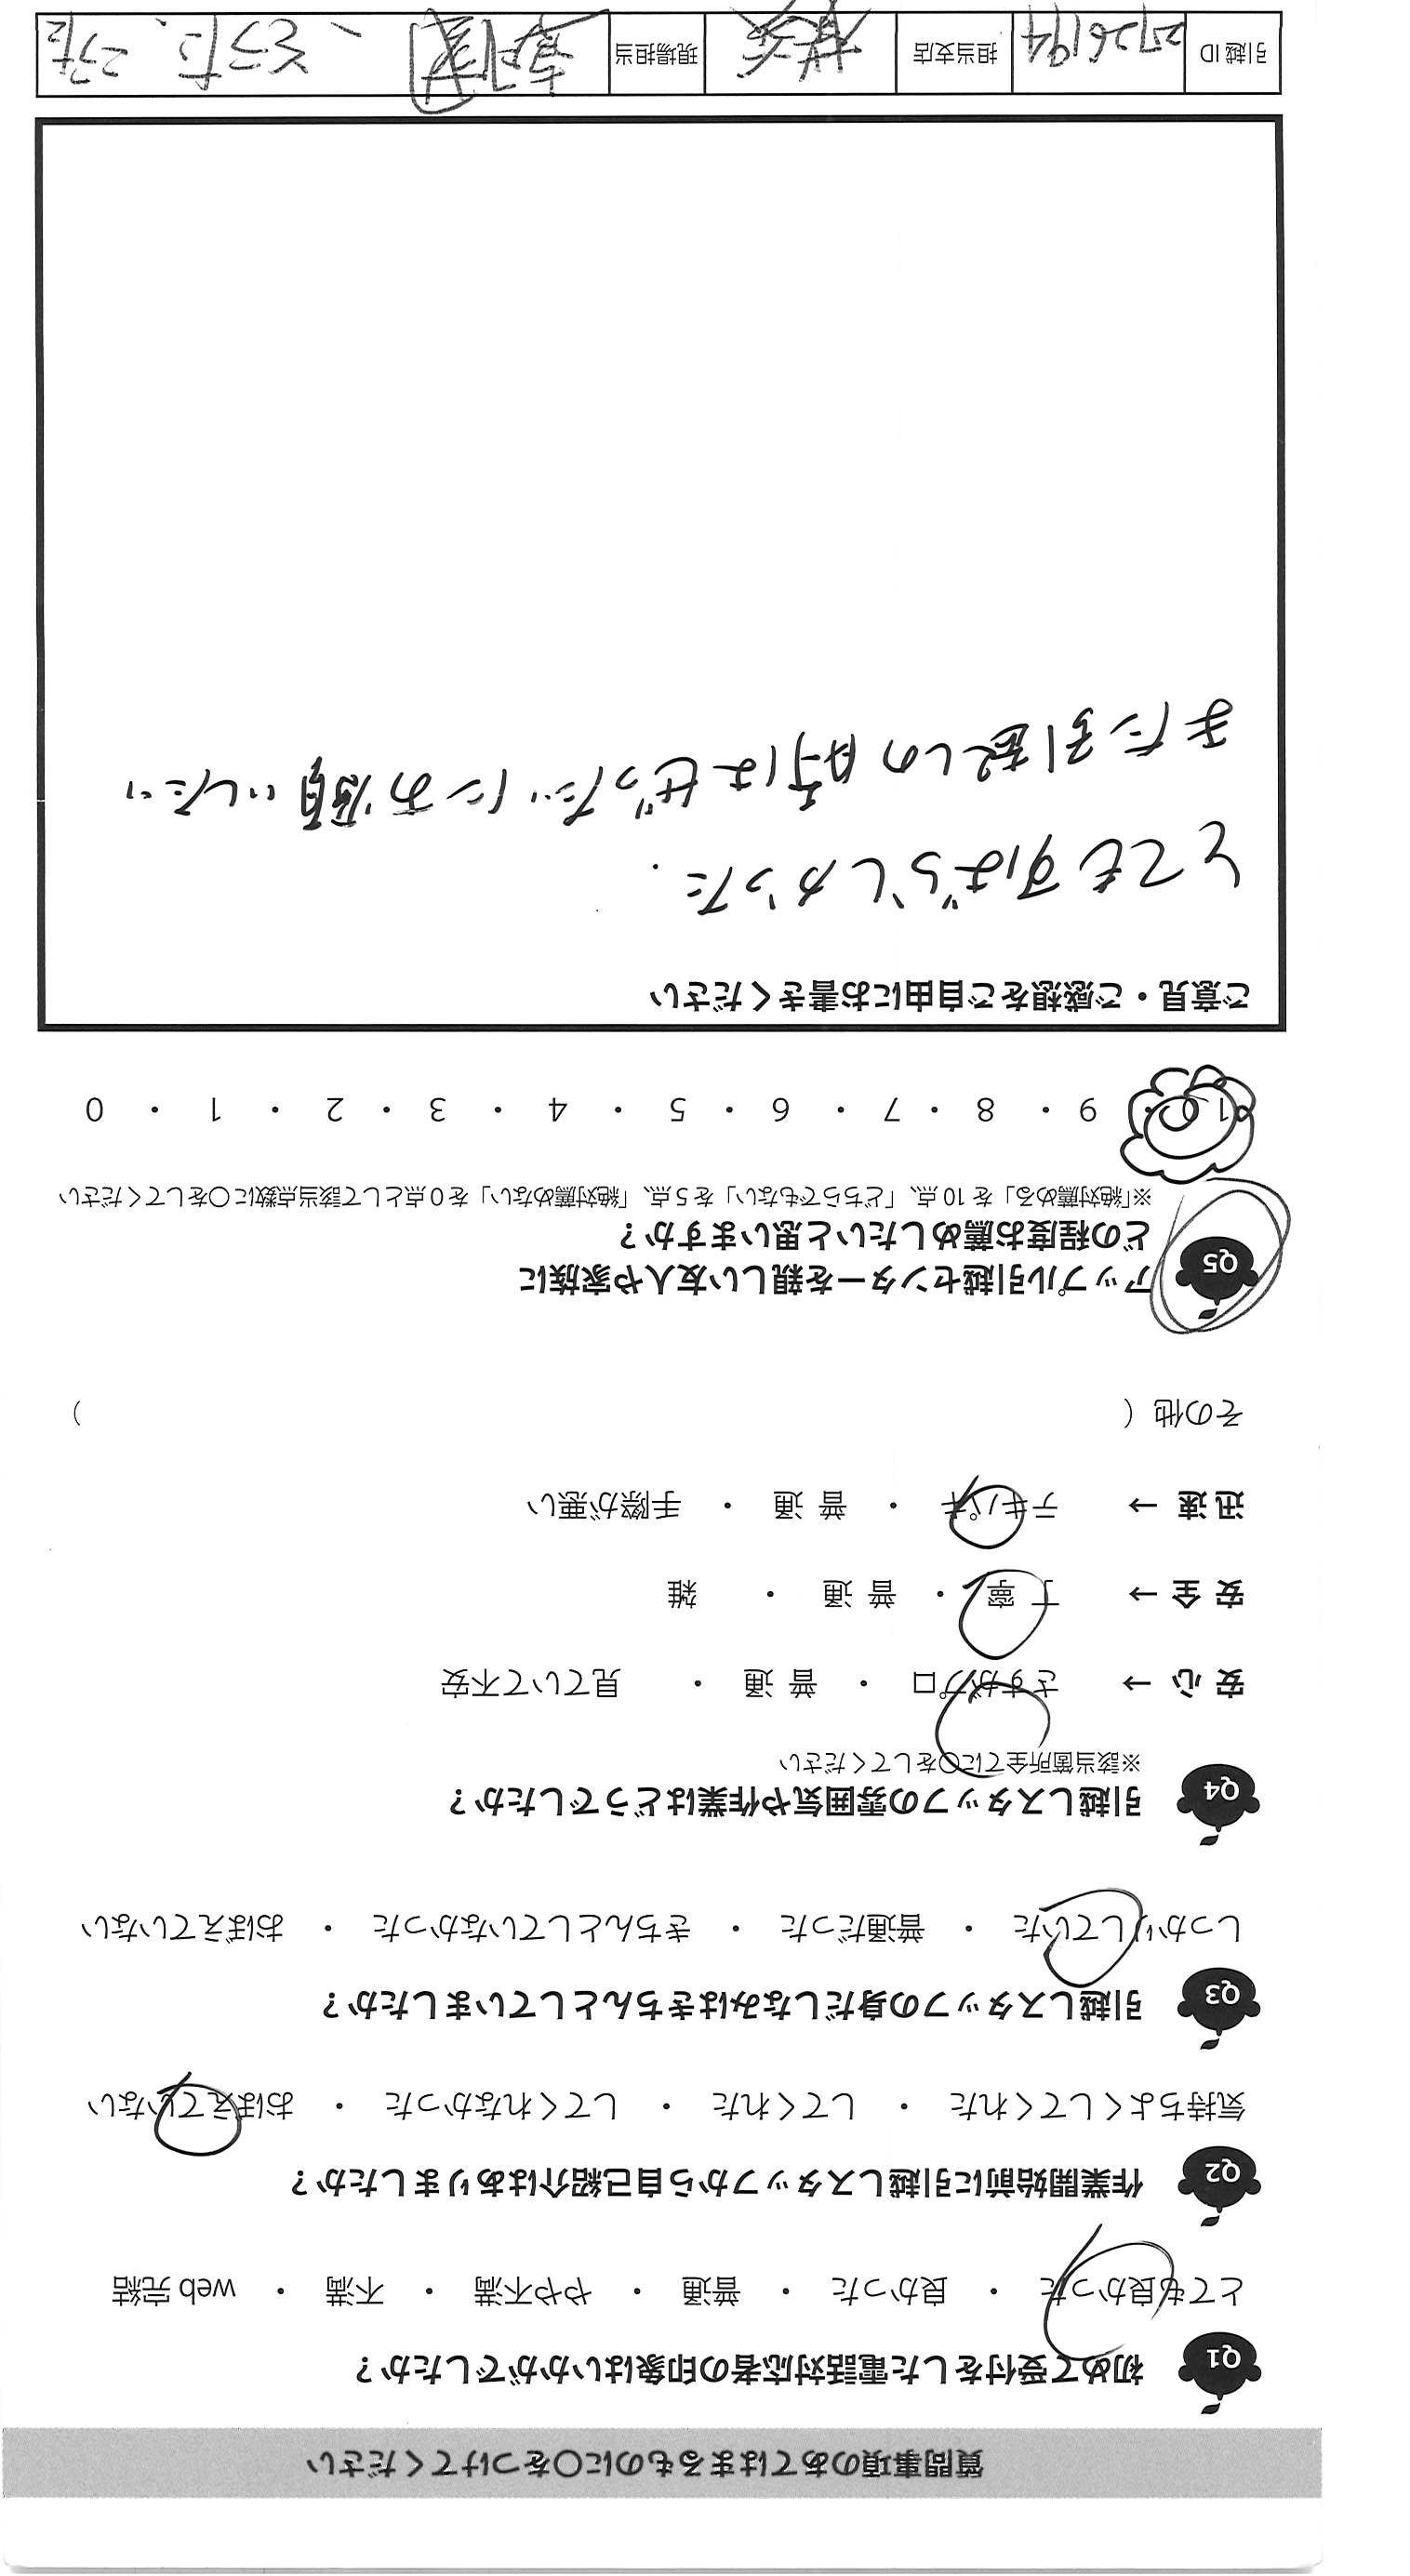 質問事項のあてはまるものに〇をつけてください
Q1 初めて受付をした電話対応者の印象はいかがでしたか？
とても良かった ・ 良かった ・ 普通 ・ やや不満 ・ 不満 ・ web 完結
Q2 作業開始前に引越しスタッフから自己紹介はありましたか？
気持ちよくしてくれた ・ してくれた ・ してくれなかった ・ おぼえていない
Q3 引越しスタッフの身だしなみはきちんとしていましたか？
しっかりしていた ・ 普通だった ・ きちんとしていなかった ・ おぼえていない
Q4 引越しスタッフの雰囲気や作業はどうでしたか？
※該当箇所全てに〇をしてください
安 心 → さすがプロ ・ 普 通 ・ 見ていて不安
安 全 → 丁 寧 ・ 普 通 ・ 雑
迅 速 → テキパキ ・ 普 通 ・ 手際が悪い
その他（ ）
Q5 アップル引越センターを親しい友人や家族に
どの程度お薦めしたいと思いますか？
※「絶対薦める」を 10 点、「どちらでもない」を 5 点、「絶対薦めない」を 0 点として該当点数に〇をしてください
10 ・ 9 ・ 8 ・ 7 ・ 6 ・ 5 ・ 4 ・ 3 ・ 2 ・ 1 ・ 0
ご意見・ご感想をご自由にお書きください
とてもすばらしかった.
また引越しの時はぜったいにお願いしたい
引越 ID 2726194 担当支店 現場担当